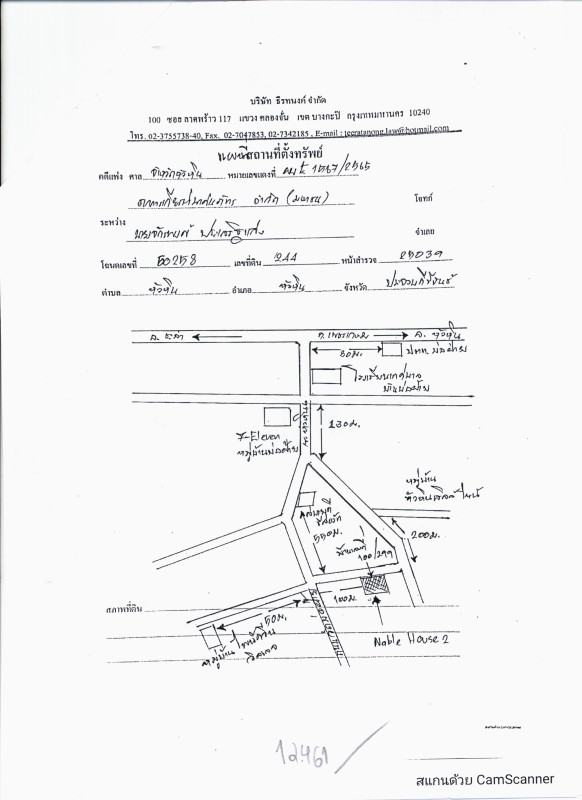 บริษัท ธีรทนงค์ จำกัด
100 ซอย ลาดพร้าว 117 แขวง คลองจั่น เขต บางกะปิ กรุงเทพมหานคร 10240
โทร. 02-3755738-40, Fax. 02-7047853, 02-7342185 , E-mail : teeratanong.law@hotmail.com
แผนที่สถานที่ตั้งทรัพย์
คดีแพ่ง ศาล จังหวัดหัวหิน หมายเลขแดงที่ ผบE 1567/2565
ธนาคารเกียรตินาคินภัทร จำกัด (มหาชน) โจทก์
ระหว่าง
จำเลย
โฉนดเลขที่ 50258 เลขที่ดิน 244 หน้าสำรวจ 25039
ตำบล หัวหิน อำเภอ หัวหิน จังหวัด ประจวบคีรีขันธ์
อ. ชะอำ ถ. เพชรเกษม อ. หัวหิน
50 ม. ปตท. บ่อฝ้าย
โรงเรียนเทศบาล
บ้านบ่อฝ้าย
7-Eleven
หมู่บ้านบ่อฝ้าย
130ม.
หมู่บ้าน
550ม.
200ม.
บ้านเลขที่
100/299
100ม.
สภาพที่ดิน
50ม.
หมู่บ้าน
วิลเลจ
Noble House 2
12461
สแกนด้วย CamScanner